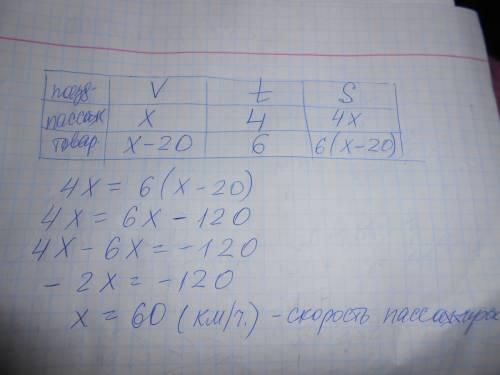 поезд- V t S
пассаж x 4 4x
товар x-20 6 6(x-20)
4x = 6(x-20)
4x = 6x - 120
4x - 6x = -120
- 2x = -120
x = 60 (км/ч.) - скорость